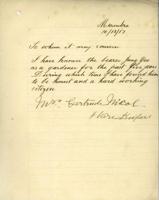 10/13/51
To whom it may concern
I have known the bearer
as a gardener for the past five years
During which time I have found him
to be honest and a hard working
citizen
Mrs Gertrude